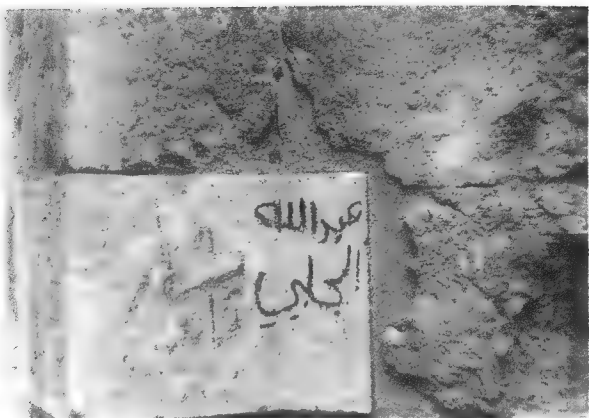 عبدالله
الجلبي